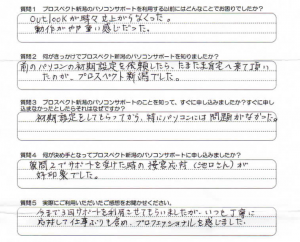 質問1 プロスペクト新潟のパソコンサポートを利用する以前にはどんなことでお困りでしたか？
outlookが時々立上がらなくなった。
動作がやや重い感じだった。
質問2 何がきっかけでプロスペクト新潟のパソコンサポートを知りましたか？
前のパソコンの初期設定を依頼したら、たまたま自宅へ来て頂い
たのが、プロスペクト新潟でした。
質問3 プロスペクト新潟のパソコンサポートのことを知って、すぐに申し込みましたか？すぐに申し
込まなかったとしたらそれはなぜですか？
初期設定をしてもらってから、特にパソコンには問題がなかった。
質問4 何が決め手となってプロスペクト新潟のパソコンサポートに申し込みましたか？
質問2でサポートを受けた時の接客応対
好印象でした。
質問5 実際にご利用いただいたご感想をお聞かせください。
今まで3回サポートを利用させてもらいましたが、いつも丁寧に
対応して
プロフェッショナルを感じました。